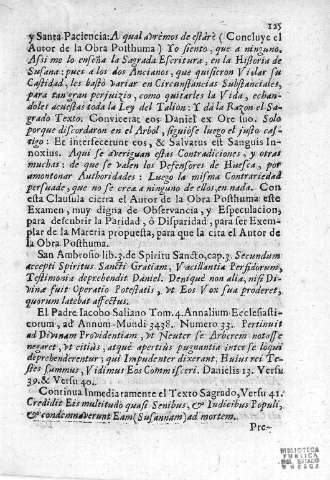 125
y Santa Paciencia: A qual avrèmos de estàr? (Concluye el
Autor de la Obra Posthuma) Yo siento, que à ninguno.
Assi me lo enseña la Sagrada Escritura, en la Historia de
Susana; pues à los dos Ancianos, que quisieron Violar su
Castidad, les bastò variar en Circunstancias Substanciales,
para tan gran perjuizio, como quitarles la Vida, echan-
doles acuestas toda la Ley del Talion: Y dà la Razon el Sa-
grado Texto. Convicerat eos Daniel ex Ore suo. Solo
porque discordaron en el Arbol, siguiòse luego el justo cas-
tigo: Et interfecerunt eos, & Salvatus est Sanguis In-
noxius. Aqui se averiguan estas Contradiciones, y otras
muchas: de que se valen los Defensores de Huesca, por
amontonar Authoridades: Luego la misma Contrariedad
persuade, que no se crea à ninguno de ellos, en nada. Con
esta Clausula cierra el Autor de la Obra Posthuma este
Examen, muy digna de Observancia, y Especulacion,
para descubrir la Paridad, ò Disparidad, para ser Exem-
plar de la Materia propuesta, para que la cita el Autor de
la Obra Posthuma.
San Ambrosio lib. 3. de Spiritu Sancto, cap. 3. Secundum
accepti Spiritus Sancti Gratiam, Vacillantia Perfidorum,
Testimonia deprehendit Daniel. Denique non alia, nisi Di-
vina fuit Operatio Potestatis, vt Eos Vox sua proderet,
quorum latebat affectus.
El Padre Iacobo Saliano Tom. 4. Annalium Ecclesiasti-
corum, ad Annum Mundi 3438. Numero 33. Pertinuit
ad Divinam Providentiam, vt Neuter se Arborem notasse
negaret, vt citiùs, atque apertiùs pugnantia inter se loqui
deprehenderentur; qui Impudenter dixerant. Huius rei Te-
stes summus, Vidimus Eos Commisceri. Danielis 13. Versu
39. & Versu 40.
Continua Inmediaramente el Texto Sagrado, Versu 41.
Credidit Eis multitudo quasi Senibus, & Iudicibus Populi,
& condemnaverunt Eam (Susannam) ad mortem.
Pre-
BIBLIOTECA
PUBLICA
DEL ESTADO
HUESCA